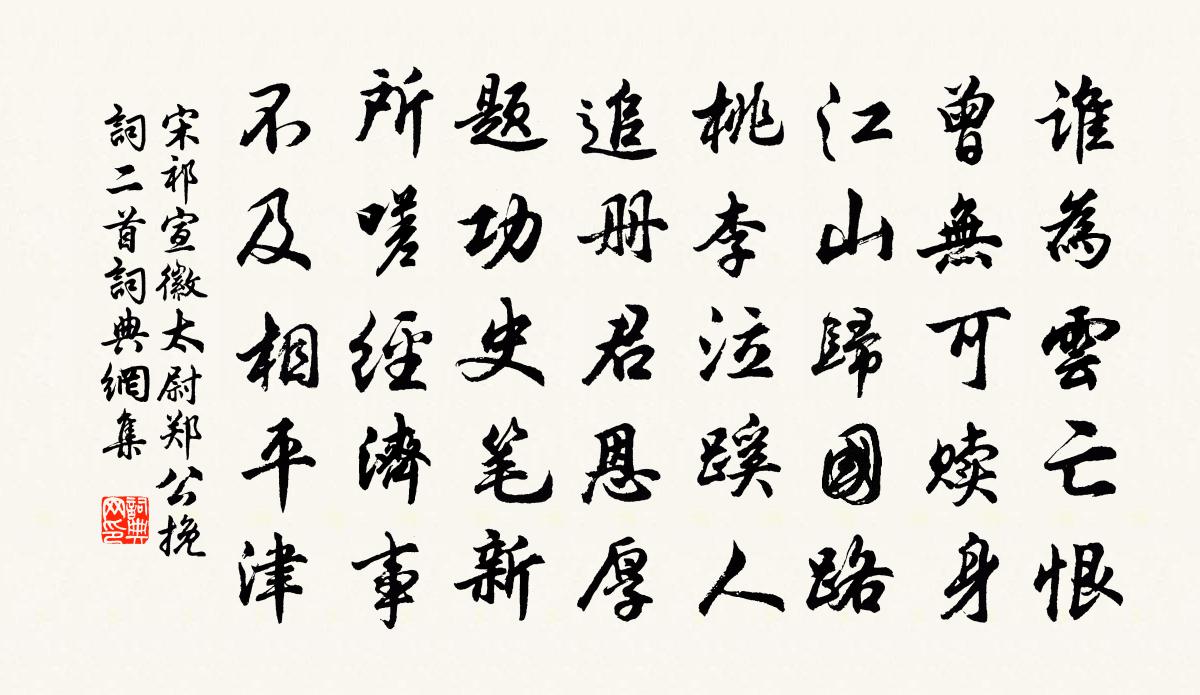 谁為雲亡恨
曾無可赎身
江山歸國路
桃李泣蹊人
追册君恩厚
题功史笔新
所嗟經濟事
不及相平津
宋祁宣徽太尉郑公挽
詞二首詞典網集
詞典
网印